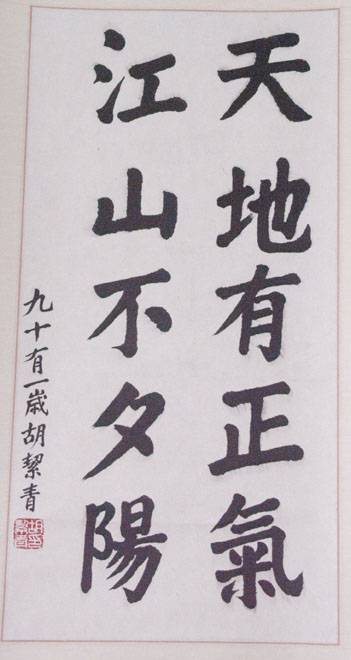 天地有正氣
江山不夕陽
九十有一歲胡絜青